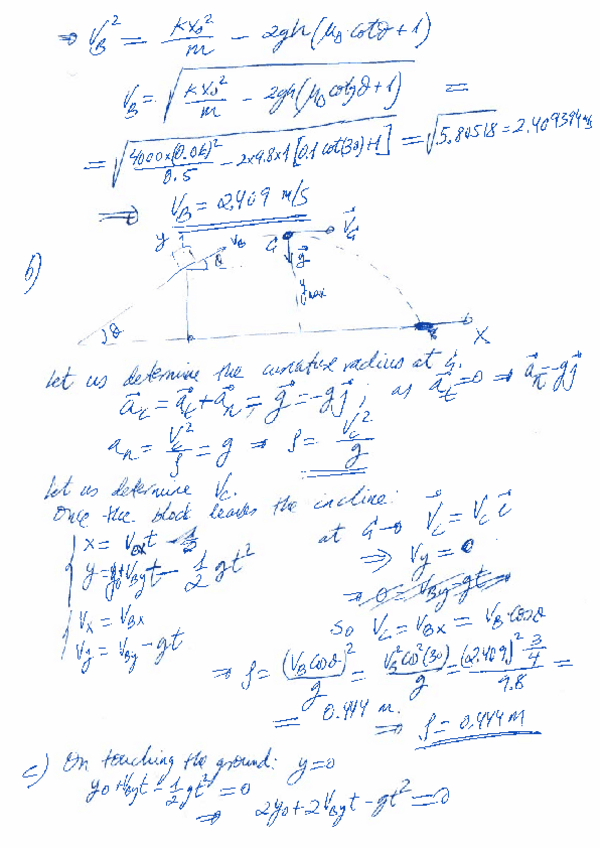 ⇒ V_B² = kx₀²/m - 2gh(μ_D cotθ + 1)
V_B = √(kx₀²/m - 2gh(μ_D cotgθ + 1)) =
= √(4000×(0.06)²/0.5 - 2×9.8×1[0.1 cot(30)+1]) = √5.80518 = 2.409394 m/s
⇒ V_B = 2.409 m/s
b)
y V_B G V⃗_G
θ g⃗
y max
θ x
Let us determine the curvature radius at G.
a⃗_c = a⃗_t + a⃗_n = g⃗ = -g j⃗, as a⃗_t = 0 ⇒ a⃗_n = -g j⃗
a_n = V_c²/ρ = g ⇒ ρ = V_c²/g
Let us determine V_c.
Once the block leaves the incline:
x = V_Bx t
y = y₀ + V_By t - 1/2 gt²
V_x = V_Bx
V_y = V_By - gt
at G → V⃗_c = V_c i⃗
⇒ V_y = 0
⇒ 0 = V_By - gt
So V_c = V_Bx = V_B cosθ
⇒ ρ = (V_B cosθ)²/g = V_B² cos²(30)/g = (2.409)² 3/4 / 9.8 =
= 0.444 m. ⇒ ρ = 0.444 m
c) On touching the ground: y = 0
y₀ + V_By t - 1/2 gt² = 0
⇒ 2y₀ + 2V_By t - gt² = 0